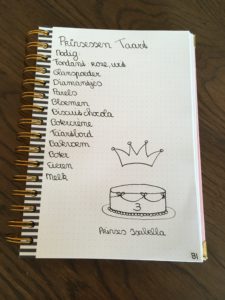 Prinsessen Taart
Nodig
Fondant roze, wit
Glanspoeder
Diamantjes
Parels
Bloemen
Biscuit chocola
Botercreme
Taartbord
Bakroem
Boter
Eieren
Melk
3
Prinses Isabella